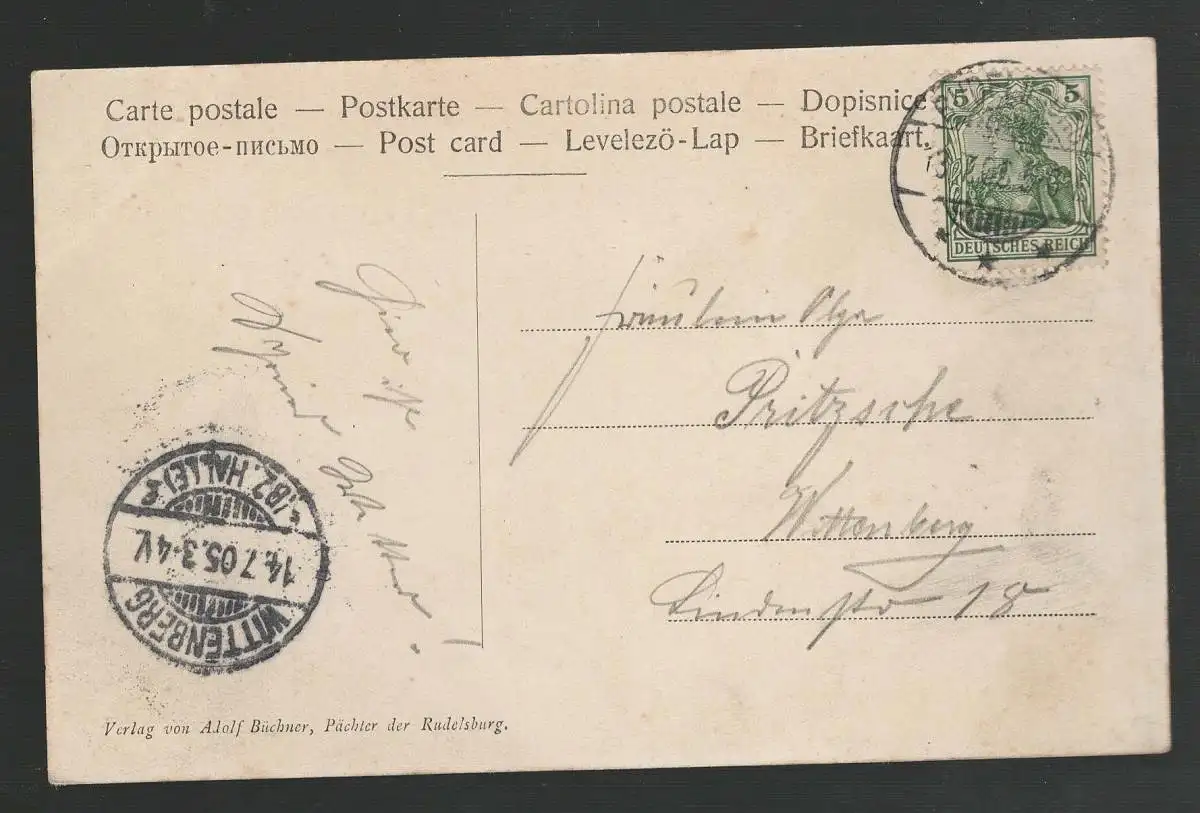 Carte postale — Postkarte — Cartolina postale — Dopisnice
Открытое-письмо — Post card — Levelező-Lap — Briefkaart.
5 5
DEUTSCHES REICH
Fräulein Olga
Pritzsche
Wittenberg
Lindenstr 18
WITTENBERG
14.7.05.3-4V.
(BZ. HALLE)
Verlag von Adolf Büchner, Pächter der Rudelsburg.